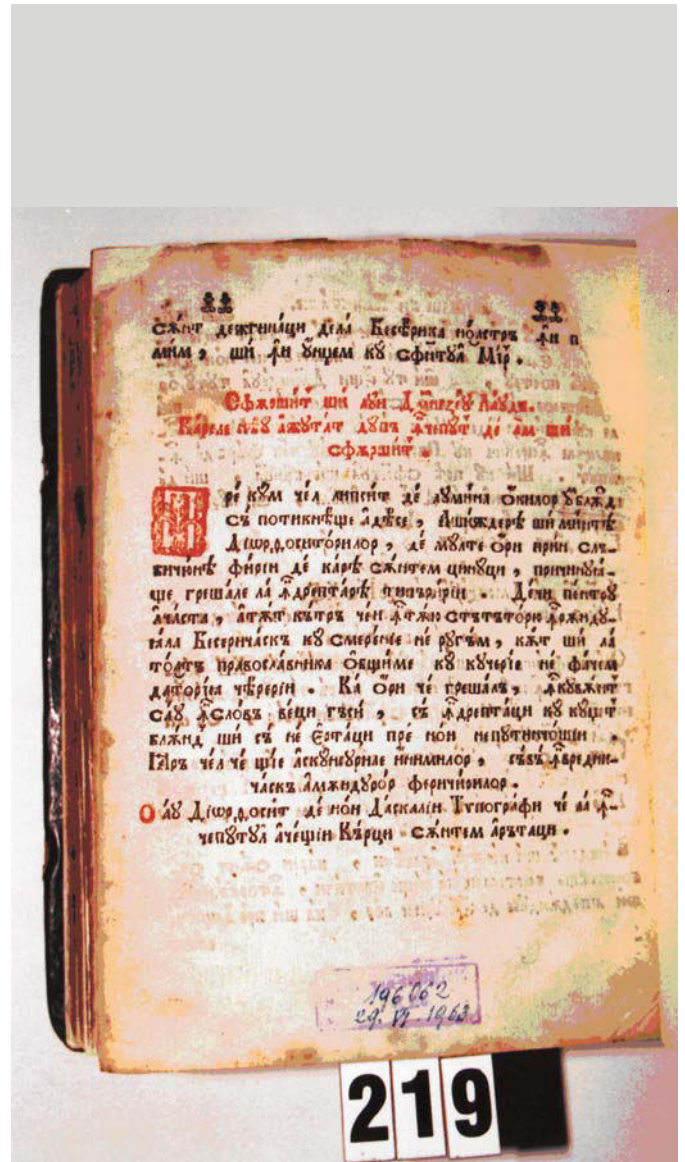 сѫнт дежгинаци дела Бесѣрика ноастръ ꙟи п
мим, ши ꙟи ᲂунцем кꙋ сфинтꙋл Мір.
Сфѫршит ши лꙋи Дꙋмнезеꙋ Лаꙋдъ.
Кареле нѣꙋ ажꙋтат дꙋпъ ꙟчепꙋт де ам ши
сфѫршит.
Пре кꙋм чел липсит де лꙋмина ѻкилор ᲂублѫд
съ потикнѣще адѣсе, Ашиждерѣ ши минтѣ
Дїѡрѳоситорилор, де мꙋлте ѻри прин слъ-
бичюнѣ фирєи де карѣ сѫнтем цинꙋци, причинꙋꙗ-
ще грешале ла ꙟдрептарѣ типърирїи. Дечи пентрꙋ
ачаста, атѫт кътръ чей ꙟтѫю стътъторю ꙟрѫндꙋ-
ꙗла Бесеричаскъ кꙋ смеренїе не рꙋгъм, кѫт ши ла
тоатъ православника ѻбщиме кꙋ кꙋчерїе не фачем
даторїꙗ чѣрерїи. Ка ѻри че грешалъ, ꙟкꙋвѫнт
саꙋ ꙟсловъ вещи гъси, съ ꙟдрептаци кꙋ кꙋцет
блѫнд ши съ не ертаци пре нои непꙋтинчошїи.
Ꙗръ чел че щїе аскꙋнсꙋриле инимилор, съвъ ꙟвредни-
часкъ амѫндꙋрор феричирилор.
Саꙋ Дїѡрѳосит де нои Даскалїи Типографи че ла ꙟ-
чепꙋтꙋл ачещїи Кърци сѫнтем арътаци.
196062
29. VI. 1963
219